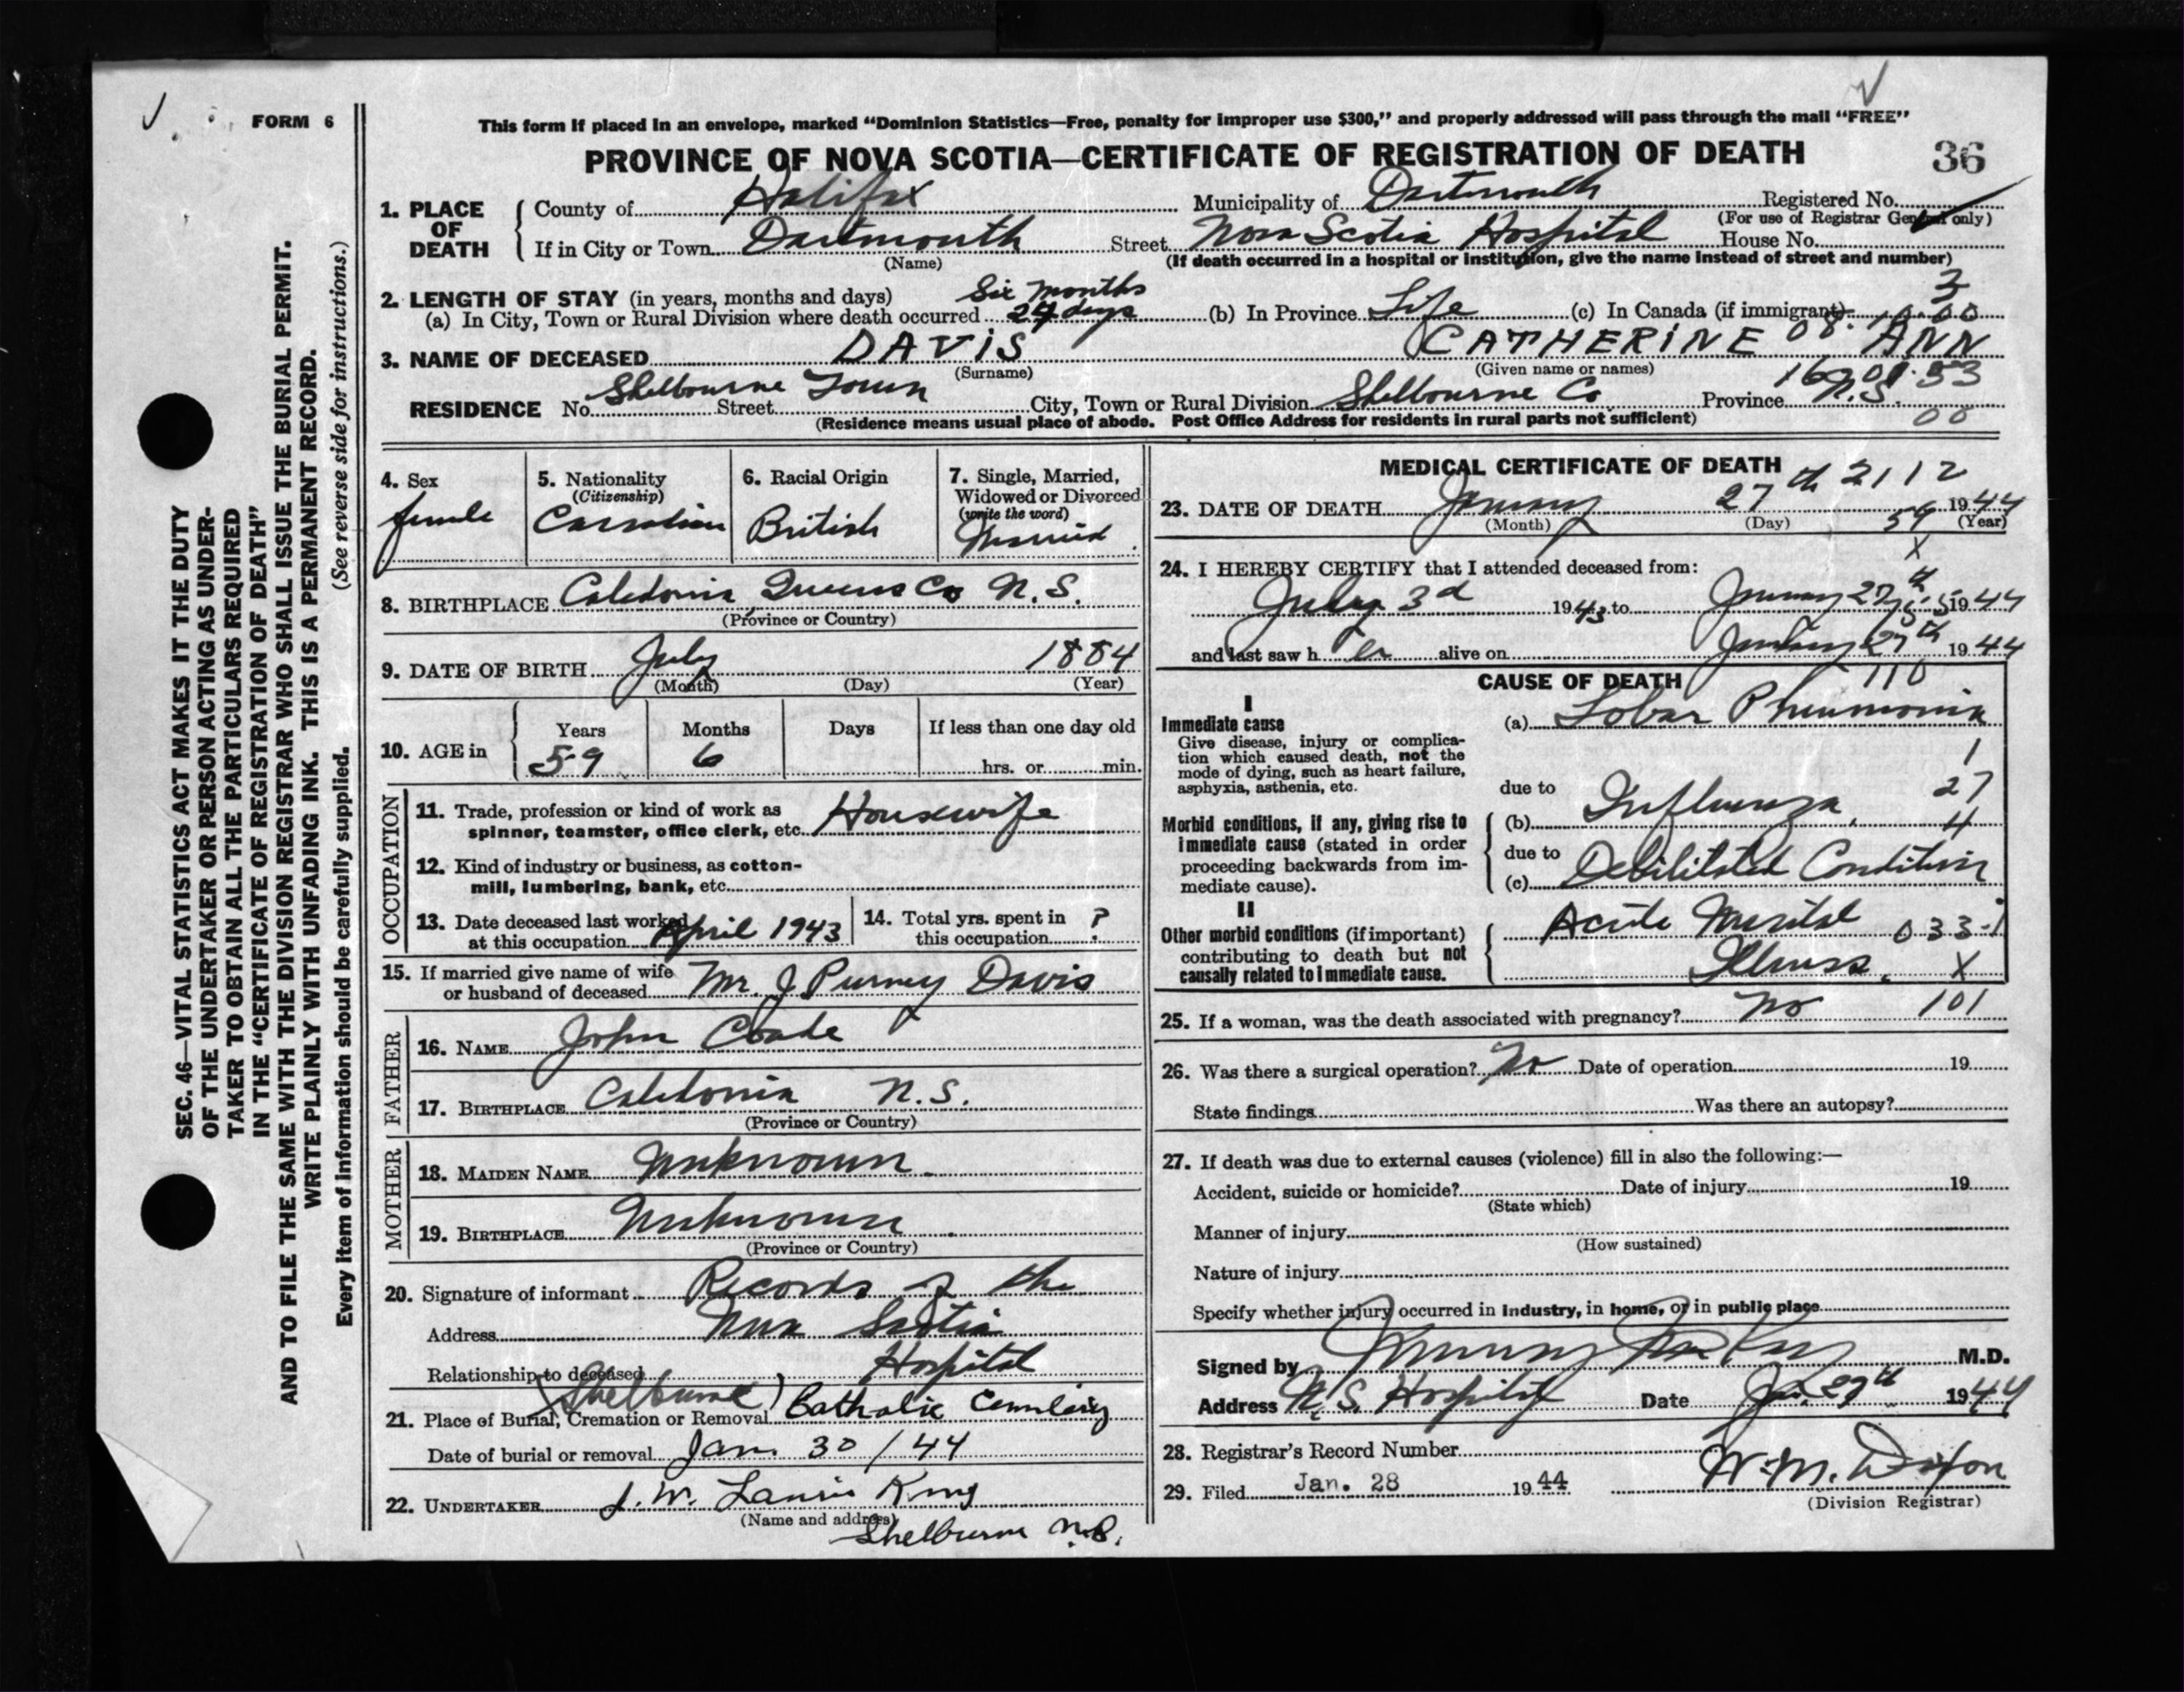 FORM 6
This form if placed in an envelope, marked “Dominion Statistics—Free, penalty for improper use $300,” and properly addressed will pass through the mail “FREE”
PROVINCE OF NOVA SCOTIA—CERTIFICATE OF REGISTRATION OF DEATH
36
1. PLACE OF DEATH
County of Halifax Municipality of Dartmouth Registered No.
(For use of Registrar General only)
If in City or Town Dartmouth Street Nova Scotia Hospital House No.
(Name) (If death occurred in a hospital or institution, give the name instead of street and number)
2. LENGTH OF STAY (in years, months and days) Six Months 3
(a) In City, Town or Rural Division where death occurred 24 days (b) In Province Life (c) In Canada (if immigrant)
3. NAME OF DECEASED DAVIS CATHERINE ANN
(Surname) (Given name or names)
RESIDENCE No. Shelbourne Town Street City, Town or Rural Division Shelbourne Co Province N.S.
(Residence means usual place of abode. Post Office Address for residents in rural parts not sufficient) 00
4. Sex female
5. Nationality (Citizenship) Canadian
6. Racial Origin British
7. Single, Married, Widowed or Divorced (write the word) Married
8. BIRTHPLACE Caledonia Queens Co N.S.
(Province or Country)
9. DATE OF BIRTH July 1884
(Month) (Day) (Year)
10. AGE in Years 59 Months 6 Days If less than one day old hrs. or min.
OCCUPATION
11. Trade, profession or kind of work as spinner, teamster, office clerk, etc. Housewife
12. Kind of industry or business, as cotton-mill, lumbering, bank, etc.
13. Date deceased last worked at this occupation April 1943
14. Total yrs. spent in this occupation ?
15. If married give name of wife or husband of deceased Mr. J Purney Davis
FATHER
16. NAME John Coade
17. BIRTHPLACE Caledonia N.S.
(Province or Country)
MOTHER
18. MAIDEN NAME Unknown
19. BIRTHPLACE Unknown
(Province or Country)
20. Signature of informant Records of the
Address Nova Scotia
Relationship to deceased Hospital
21. Place of Burial, Cremation or Removal Shelburne Catholic Cemetery
Date of burial or removal Jan. 30 / 44
22. UNDERTAKER J. W. Lanis King
(Name and address)
Shelburne N.S.
MEDICAL CERTIFICATE OF DEATH
2112
23. DATE OF DEATH January 27th 1944
(Month) (Day) 59 (Year)
X
24. I HEREBY CERTIFY that I attended deceased from:
July 3d 1943 to January 27th 1944
and last saw her alive on January 27th 1944
CAUSE OF DEATH 110
I
Immediate cause
Give disease, injury or complication which caused death, not the mode of dying, such as heart failure, asphyxia, asthenia, etc.
(a) Lobar Pneumonia
1
due to 27
Morbid conditions, if any, giving rise to immediate cause (stated in order proceeding backwards from immediate cause).
(b) Influenza
due to
(c) Debilitated Condition
II
Other morbid conditions (if important) contributing to death but not causally related to immediate cause.
Acute Mental 033-1
Illness. X
25. If a woman, was the death associated with pregnancy? No 101
26. Was there a surgical operation? No Date of operation 19
State findings Was there an autopsy?
27. If death was due to external causes (violence) fill in also the following:—
Accident, suicide or homicide? Date of injury 19
(State which)
Manner of injury
(How sustained)
Nature of injury
Specify whether injury occurred in industry, in home, or in public place
Signed by Murray MacKay M.D.
Address N.S. Hospital Date Jan. 27th 1944
28. Registrar's Record Number
29. Filed Jan. 28 1944 W. M. Dixon
(Division Registrar)
SEC. 46—VITAL STATISTICS ACT MAKES IT THE DUTY
OF THE UNDERTAKER OR PERSON ACTING AS UNDER-
TAKER TO OBTAIN ALL THE PARTICULARS REQUIRED
IN THE “CERTIFICATE OF REGISTRATION OF DEATH”
AND TO FILE THE SAME WITH THE DIVISION REGISTRAR WHO SHALL ISSUE THE BURIAL PERMIT.
WRITE PLAINLY WITH UNFADING INK. THIS IS A PERMANENT RECORD.
Every item of information should be carefully supplied. (See reverse side for instructions.)